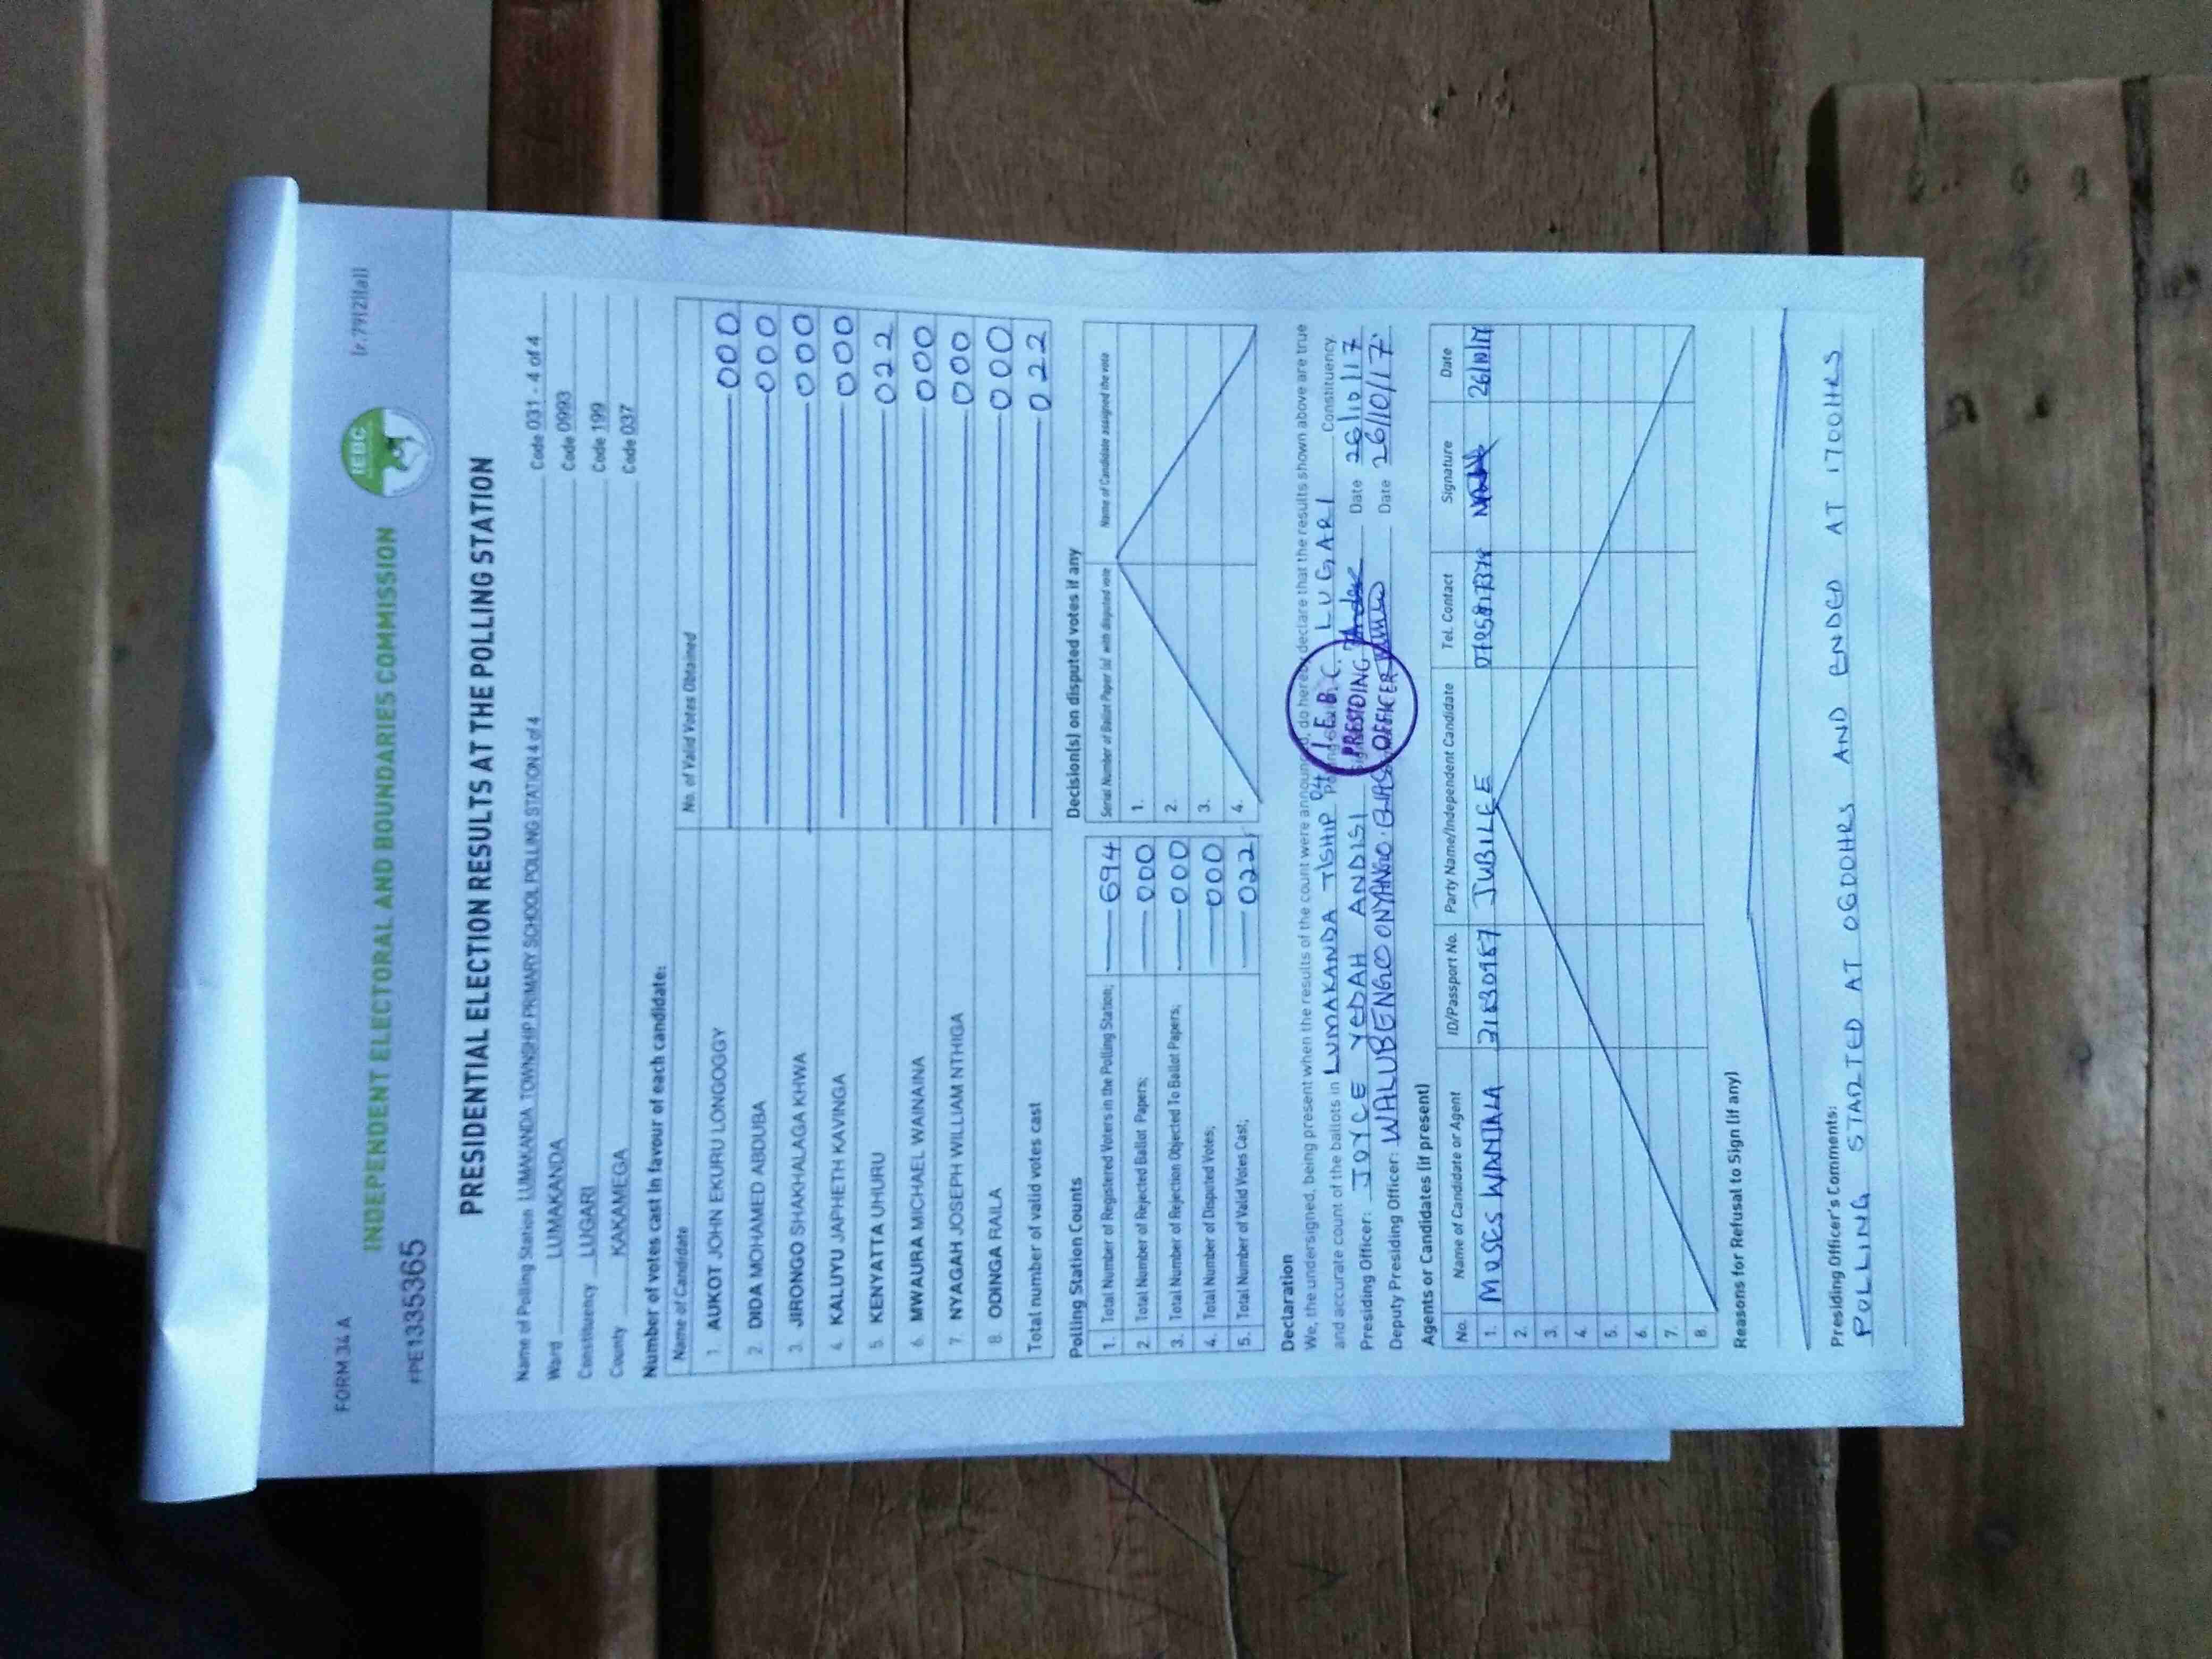 FORM 34 A
[r.79(2)(a)]
IEBC
INDEPENDENT ELECTORAL AND BOUNDARIES COMMISSION
#PE1335365
PRESIDENTIAL ELECTION RESULTS AT THE POLLING STATION
Name of Polling Station LUMAKANDA TOWNSHIP PRIMARY SCHOOL POLLING STATION 4 of 4 Code 031 - 4 of 4
Ward LUMAKANDA Code 0993
Constituency LUGARI Code 199
County KAKAMEGA Code 037
Number of votes cast in favour of each candidate:
Name of Candidate No. of Valid Votes Obtained
1. AUKOT JOHN EKURU LONGOGGY 000
2. DIDA MOHAMED ABDUBA 000
3. JIRONGO SHAKHALAGA KHWA 000
4. KALUYU JAPHETH KAVINGA 000
5. KENYATTA UHURU 022
6. MWAURA MICHAEL WAINAINA 000
7. NYAGAH JOSEPH WILLIAM NTHIGA 000
8. ODINGA RAILA 000
Total number of valid votes cast 022
Polling Station Counts
1. Total Number of Registered Voters in the Polling Station; 694
2. Total Number of Rejected Ballot Papers; 000
3. Total Number of Rejection Objected To Ballot Papers; 000
4. Total Number of Disputed Votes; 000
5. Total Number of Valid Votes Cast; 022
Decision(s) on disputed votes if any
Serial Number of Ballot Paper (s) with disputed vote Name of Candidate assigned the vote
1.
2.
3.
4.
Declaration
We, the undersigned, being present when the results of the count were announced, do hereby declare that the results shown above are true
and accurate count of the ballots in LUMAKANDA T/SHIP LUGARI Constituency.
Presiding Officer: JOYCE YEDAH ANDISI Date 26/10/17
Deputy Presiding Officer: WALUBENGO ONYANGO ELIAS Date 26/10/17
I.E.B.C.
PRESIDING
OFFICER
Agents or Candidates (if present)
No. Name of Candidate or Agent ID/Passport No. Party Name/Independent Candidate Tel. Contact Signature Date
1. MOSES WANJALA JUBILEE 26/10/17
2.
3.
4.
5.
6.
7.
8.
Reasons for Refusal to Sign (if any)
Presiding Officer's Comments:
POLLING STARTED AT 0600HRS AND ENDED AT 1700HRS